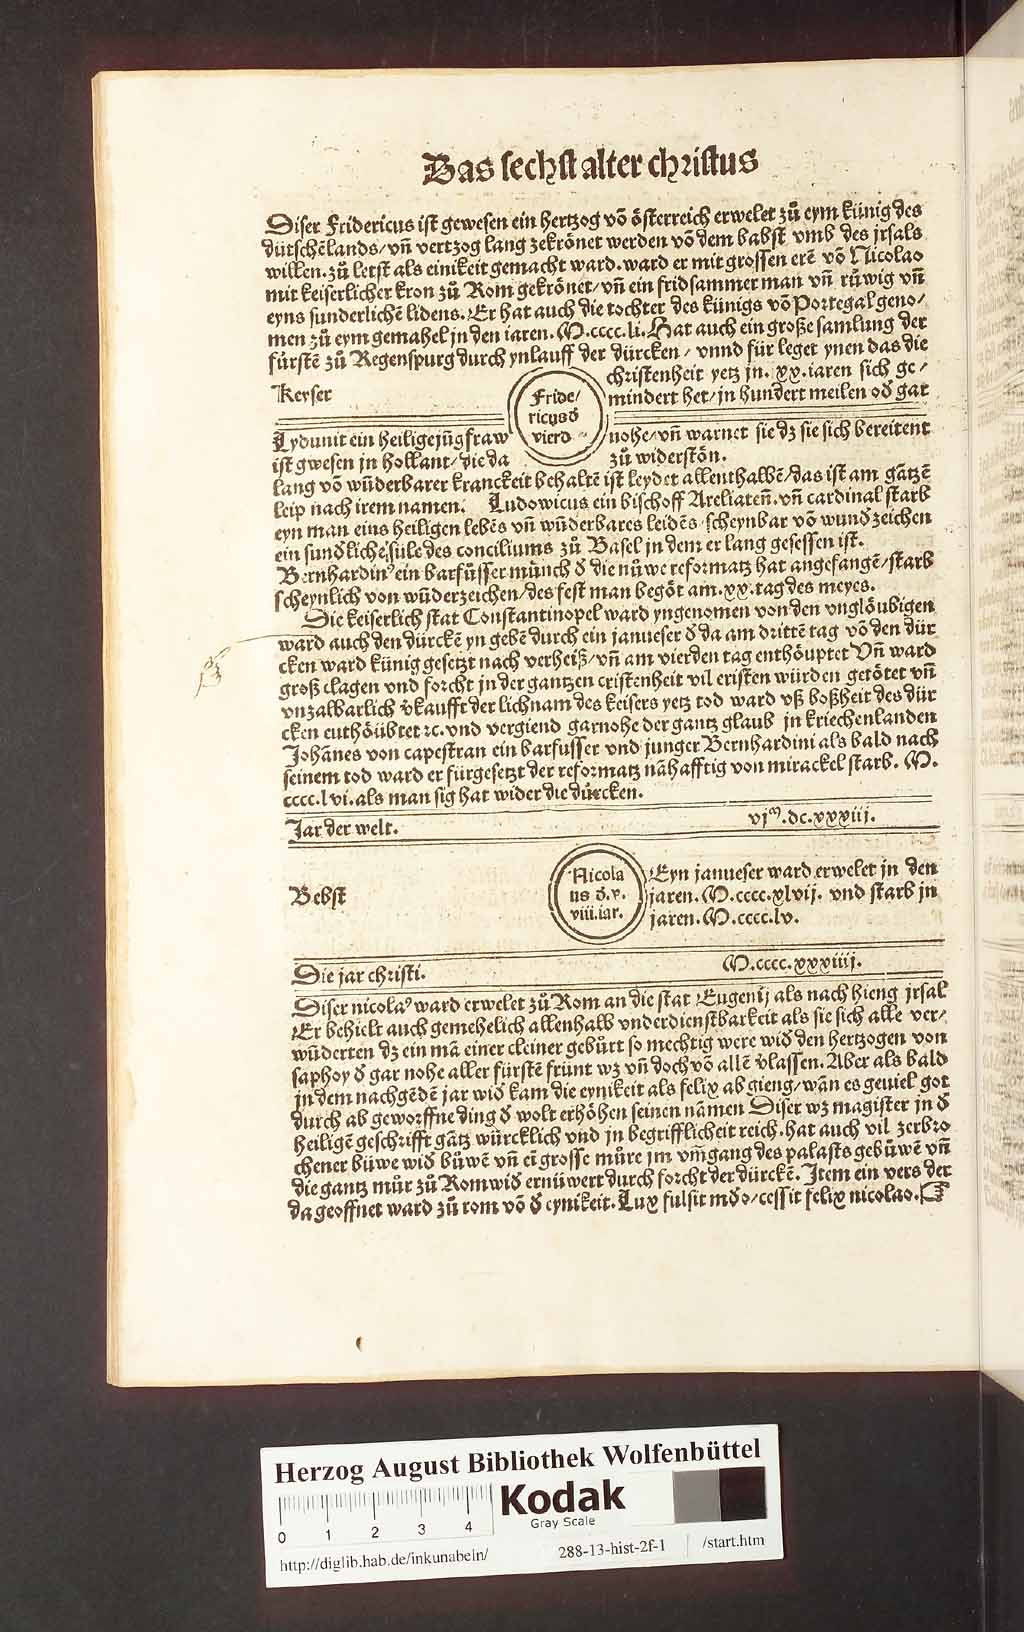 Das sechst alter christus
Diser Fridericus ist gewesen ein hertzog võ österreich erwelet zů eym künig des
dütschẽlands/ vñ vertzog lang zekrönet werden võ dem babst vmb des jrsals
willen. zů letst als einikeit gemacht ward. ward er mit grossen erẽ võ Nicolao
mit keiserlicher kron zů Rom gekrönet/ vñ ein fridsammer man vñ rüwig vñ
eyns sunderlichẽ lidens. Er hat auch die tochter des künigs võ Portegal geno/
men zů eym gemahel jn den iaren. M.cccc.li. Hat auch ein große samlung der
fürstẽ zů Regenspurg durch ynlauff der dürcken/ vnnd für leget ynen das die
christenheit yetz jn. xx. iaren sich ge/
mindert het/ jn hundert meilen oď gar
Keyser
Fride/
ricus ď
vierd
Lydunit ein heilige jũgfraw
ist gwesen jn hollant/ die da
nohe/ vñ warnet sie dz sie sich bereitent
zů widerstõn.
lang võ wũderbarer kranckeit behaltẽ ist leydet allenthalbẽ/ das ist am gãtzẽ
leip nach irem namen. Ludowicus ein bischoff Areliateñ. vñ cardinal starb
eyn man eins heiligen lebẽs vñ wũderbares leidẽs scheynbar võ wunď zeichen
ein sunďliche süle des conciliums zů Basel jn dem er lang gesessen ist.
Bernhardin⁹ ein barfüsser münch ď die nüwe reformatz hat angefangẽ/ starb
scheynlich von wũderzeichen/ des fest man begõt am. xx. tag des meyes.
Die keiserlich stat Constantinopel ward yngenomen von den vnglöubigen
ward auch den dürckẽ yn gebẽ durch ein janueser ď da am drittẽ tag võ den dür
cken ward künig gesetzt nach verheiß/ vñ am vierden tag enthöuptet Vñ ward
groß clagen vnd forcht jn der gantzen cristenheit vil cristen würden getötet vñ
vnzalbarlich ṽkaufft der lichnam des keisers yetz tod ward vß boßheit des dür
cken enthöübtet ⁊c. vnd vergiend garnohe der gantz glaub jn kriechenlanden
Johãnes von capestran ein barfusser vnd junger Bernhardini als bald nach
seinem tod ward er fürgesetzt der reformatz nãhafftig von mirackel starb. M.
cccc.lvi. als man sig hat wider die dürcken.
Jar der welt. vjᵐ.dc.xxxiij.
Bebst
Nicola
us ď.v.
viii.iar.
Eyn janueser ward erwelet jn den
jaren. M.cccc.xlvij. vnd starb jn
jaren. M.cccc.lv.
Die jar christi. M.cccc.xxxiiij.
Diser nicola⁹ ward erwelet zů Rom an die stat Eugenij als nach hieng jrsal
Er behielt auch gemehelich allenhalb vnderdienstbarkeit als sie sich alle ver/
wũderten dz ein mã einer cleiner gebürt so mechtig were wiď den hertzogen von
saphoy ď gar nohe aller fürstẽ frünt wz vñ doch võ allẽ ṽlassen. Aber als bald
jn dem nachgẽdẽ jar wiď kam die eynikeit als felix ab gieng/ wãn es geuiel got
durch ab geworffne ding ď wolt erhöhen seinen nãmen Diser wz magister jn ď
heiligẽ geschrifft gãtz würcklich vnd jn begrifflicheit reich. hat auch vil zerbro
chener büwe wiď büwẽ vñ eĩ grosse müre jm vm̃gang des palasts gebüwẽ vñ
die gantz mür zů Rom wiď ernüwert durch forcht der dürckẽ. Item ein vers der
da geoffnet ward zů rom võ ď eynikeit. Lux fulsit mďo/ cessit felix nicolao.
Herzog August Bibliothek Wolfenbüttel
0 1 2 3 4
Kodak
Gray Scale
http://diglib.hab.de/inkunabeln/ 288-13-hist-2f-1 /start.htm